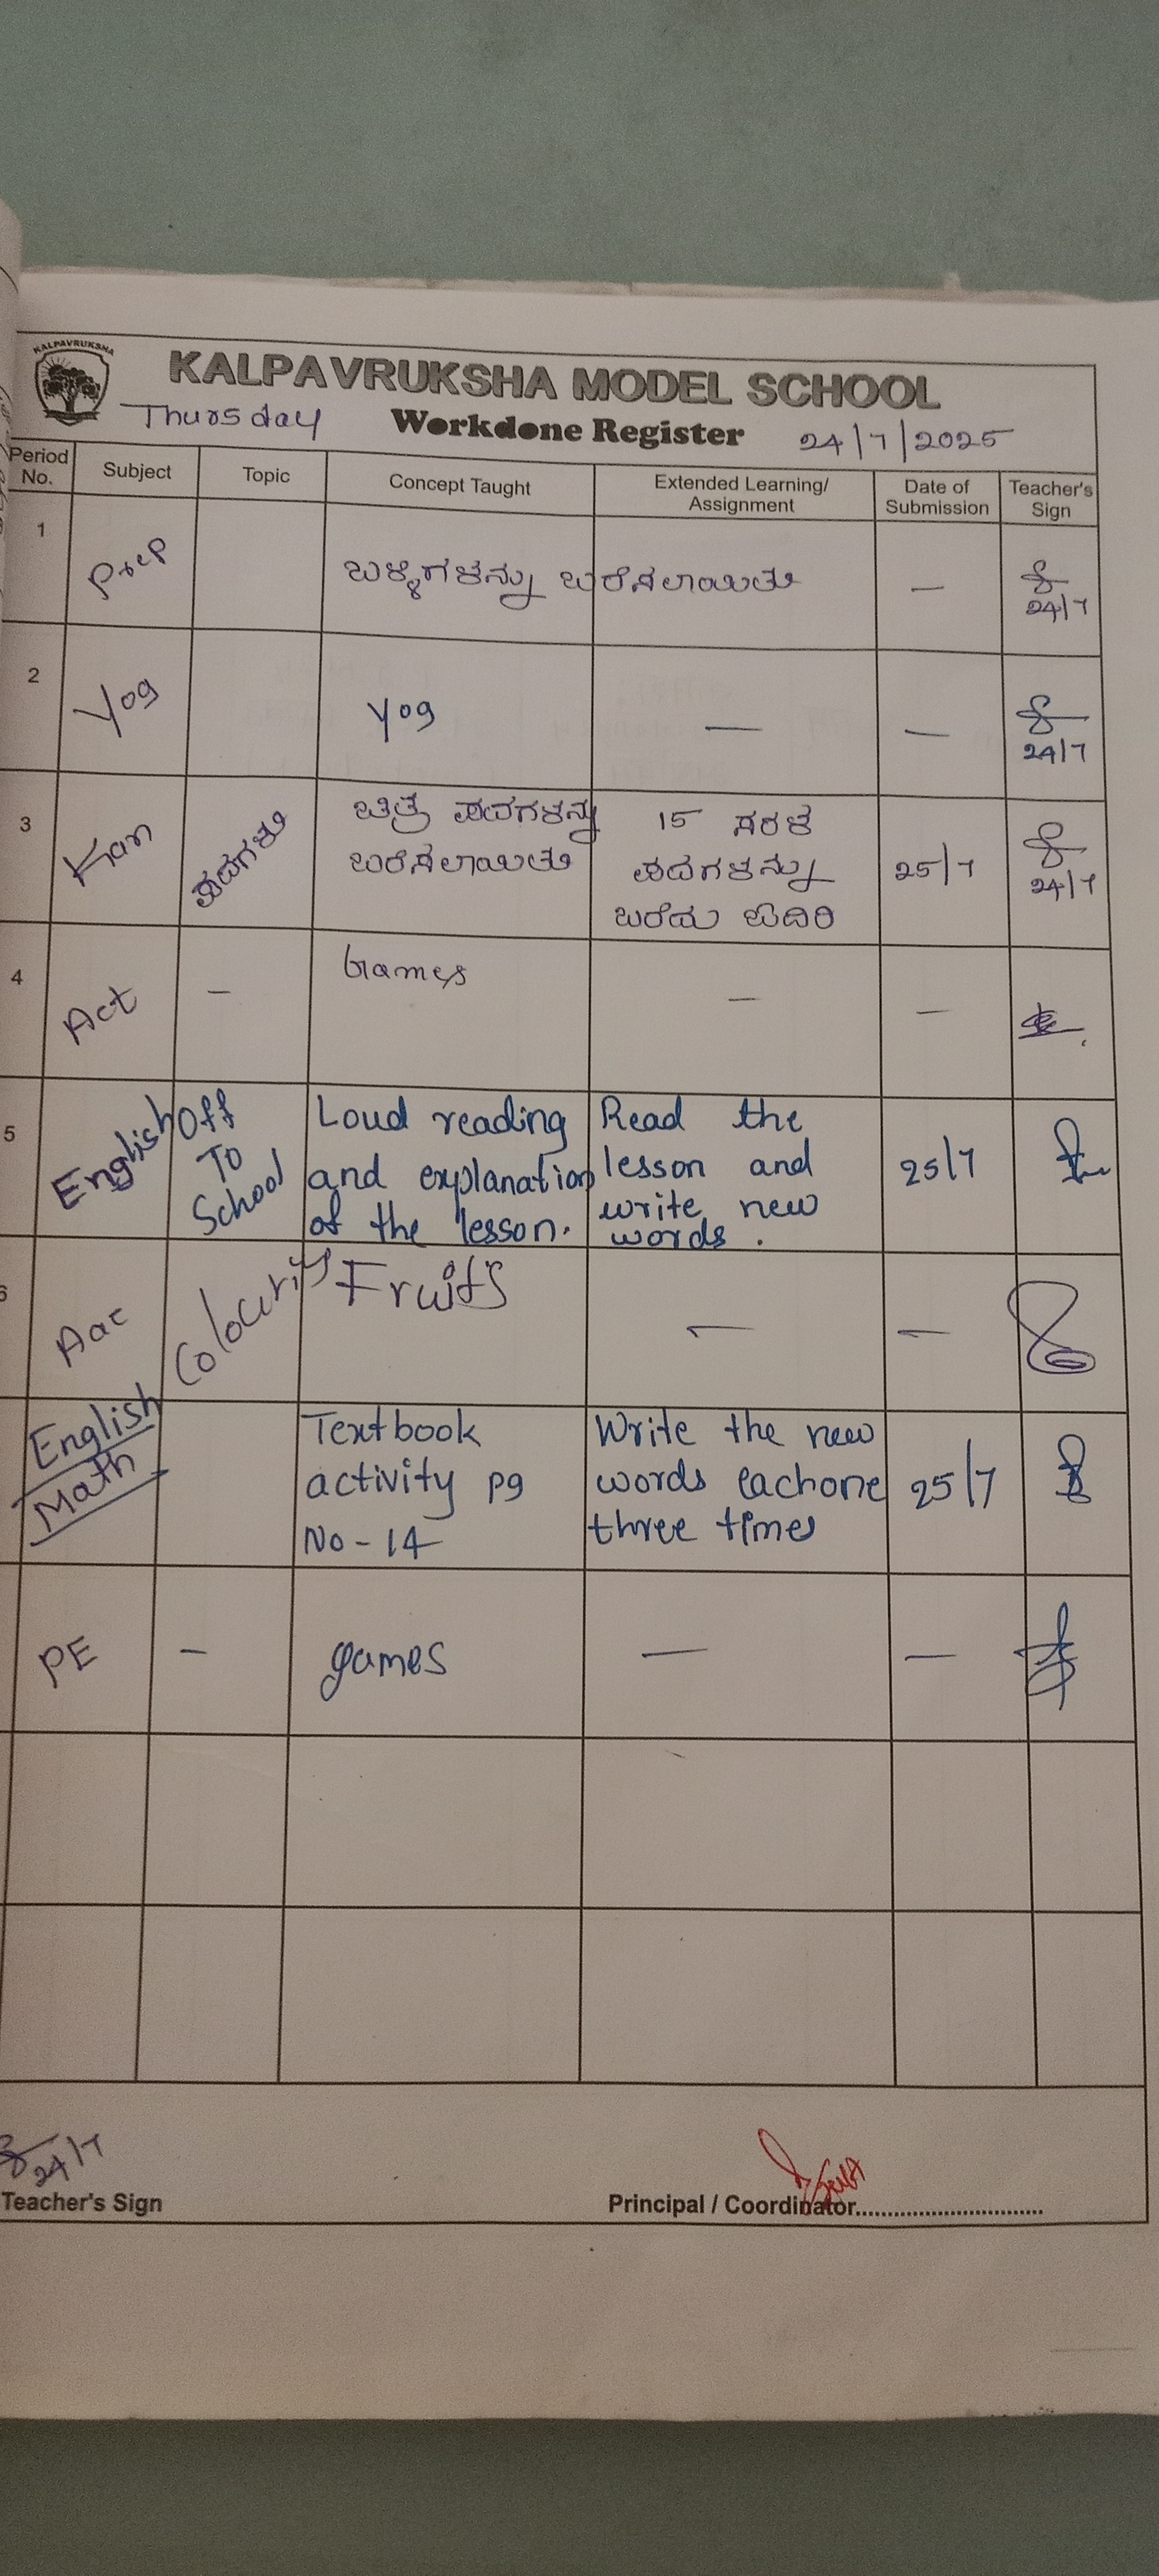 KALPAVRUKSHA
KALPAVRUKSHA MODEL SCHOOL
Thursday Workdone Register 24/7/2025
Period No. Subject Topic Concept Taught Extended Learning/ Assignment Date of Submission Teacher's Sign
1 Prep ಬಳ್ಳಿಗಳನ್ನು ಬರೆಸಲಾಯಿತು — 24/7
2 Yog Yog — — 24/7
3 Kan ಪದಗಳು ಚಿತ್ರ ಪದಗಳನ್ನು 15 ಸರಳ
ಬರೆಸಲಾಯಿತು ಪದಗಳನ್ನು 25/7 24/7
ಬರೆದು
4 Act — Games — —
5 English Off Loud reading Read the
To and explanation lesson and 25/7
School of the lesson. write new
words.
6 Aac Colouring Fruits — —
English Textbook Write the new
Math activity pg words eachone 25/7
No - 14 three times
PE - games — —
24/7
Teacher's Sign Principal / Coordinator